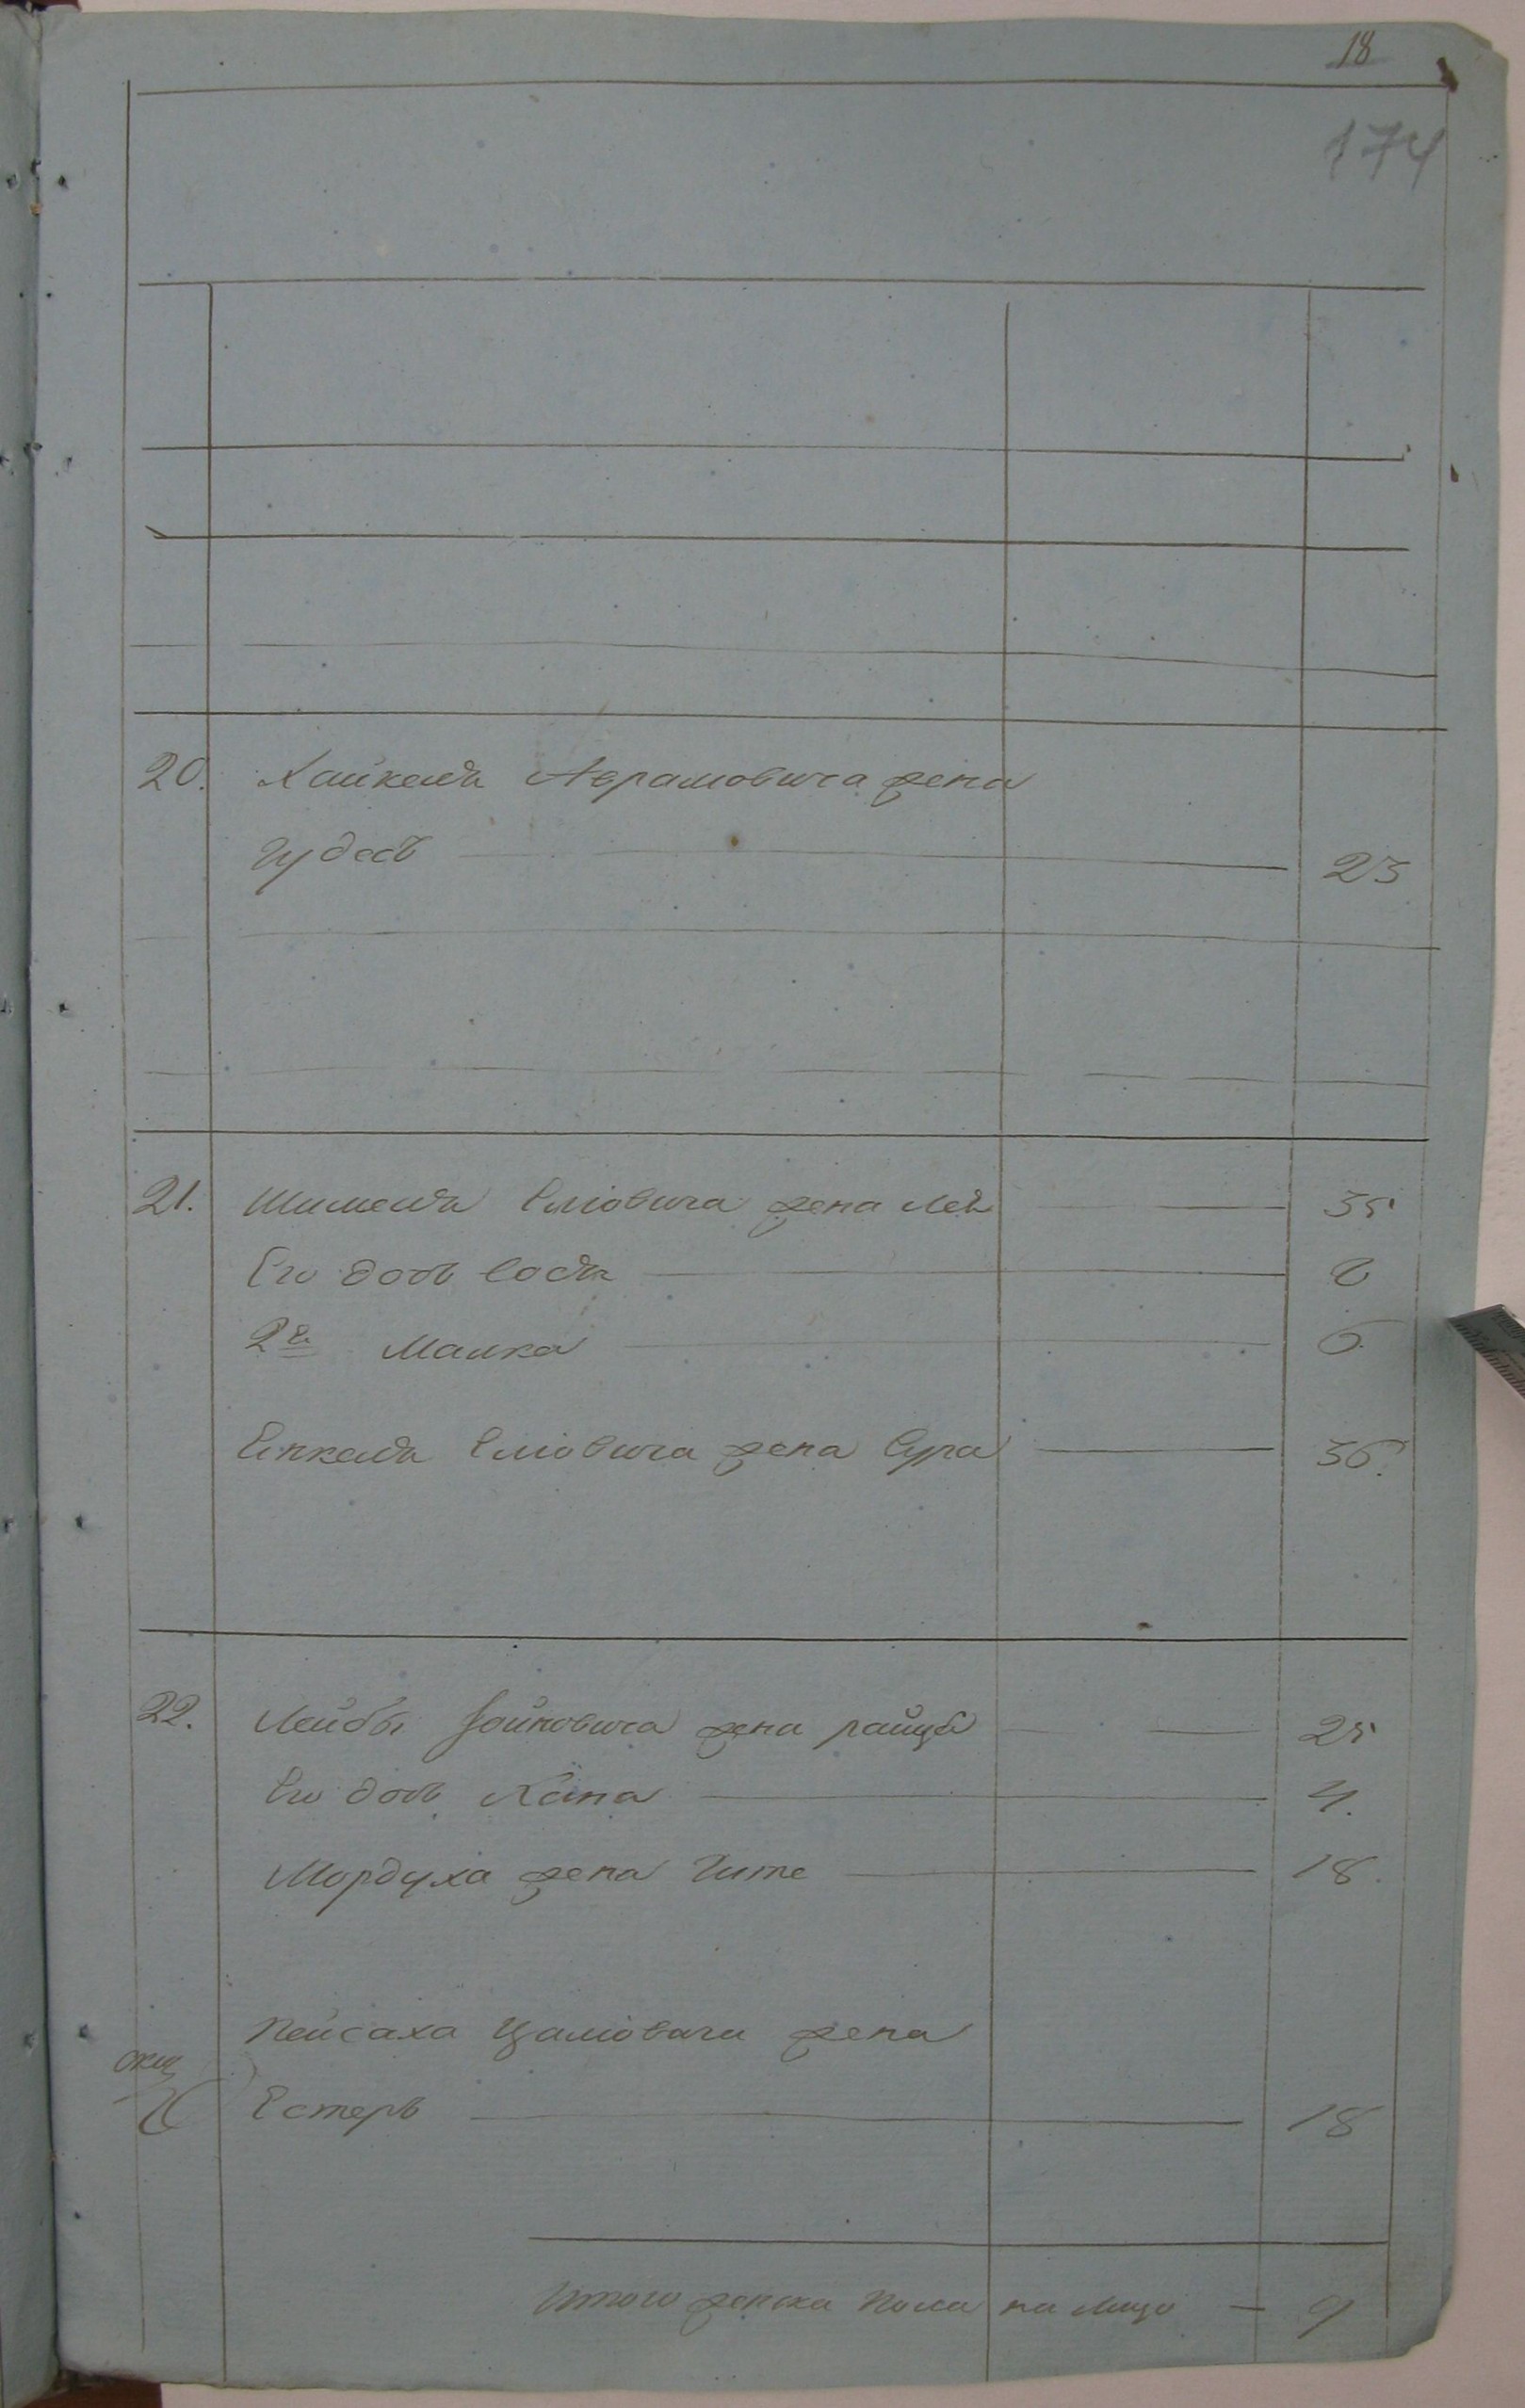 18
174
20. Хайкеля Аврамовича жена
Гудесъ — 23
21. Шимеля Еліовича жена Лея — 35
Его дочь Сося — 8
2я Малка — 6.
Янкеля Еліовича жена Сура — 36.
22. Лейбы жена Райца — 25
Его дочь Хана — 4.
Мордуха жена Гите — 18.
Пейсаха жена
Естерь — 18
Итого женска пола на лицо — 9